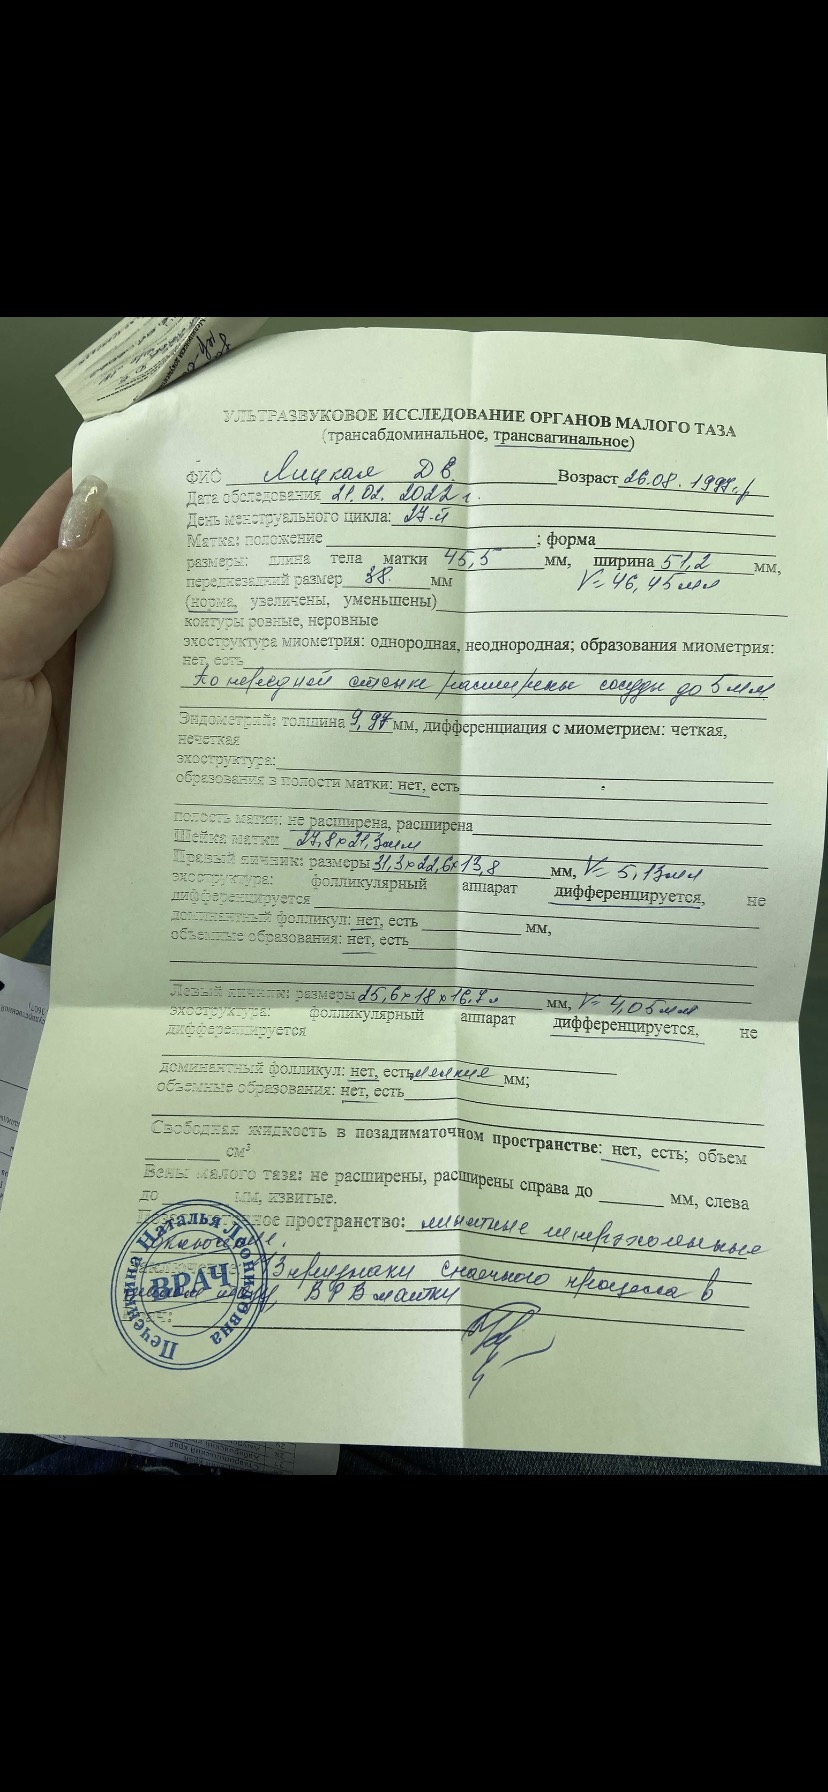 УЛЬТРАЗВУКОВОЕ ИССЛЕДОВАНИЕ ОРГАНОВ МАЛОГО ТАЗА
(трансабдоминальное, трансвагинальное)
ФИО Лицкая Д В. Возраст 26.08.
Дата обследования 21.02. 2022 г.
День менструального цикла: 27-й
Матка: положение ; форма
размеры: длина тела матки 45,5 мм, ширина 51,2 мм,
переднезадний размер 38. мм V= 46,45 мл
(норма, увеличены, уменьшены)
контуры ровные, неровные
эхоструктура миометрия: однородная, неоднородная; образования миометрия:
нет, есть
По передней стенке расширены сосуды до 5 мм
Эндометрий: толщина 9,97 мм, дифференциация с миометрием: четкая,
нечеткая
эхоструктура:
образования в полости матки: нет, есть
полость матки: не расширена, расширена
Шейка матки 27,8×21,3 мм
Правый яичник: размеры 31,3×22,6×13,8 мм, V= 5,13 мл
эхоструктура: фолликулярный аппарат дифференцируется, не
дифференцируется
доминантный фолликул: нет, есть мм,
объемные образования: нет, есть
Левый яичник: размеры 25,6×18×16,7 мм, V= 4,05 мл
эхоструктура: фолликулярный аппарат дифференцируется, не
дифференцируется
доминантный фолликул: нет, есть мелкие мм;
объемные образования: нет, есть
Свободная жидкость в позадиматочном пространстве: нет, есть; объем
см³
Вены малого таза: не расширены, расширены справа до мм, слева
до мм, извитые.
пространство: линейные гиперэхогенные
включения.
признаки спаечного процесса в
малом тазу, ВРВ матки
Печенкина Наталья Леонидовна
ВРАЧ